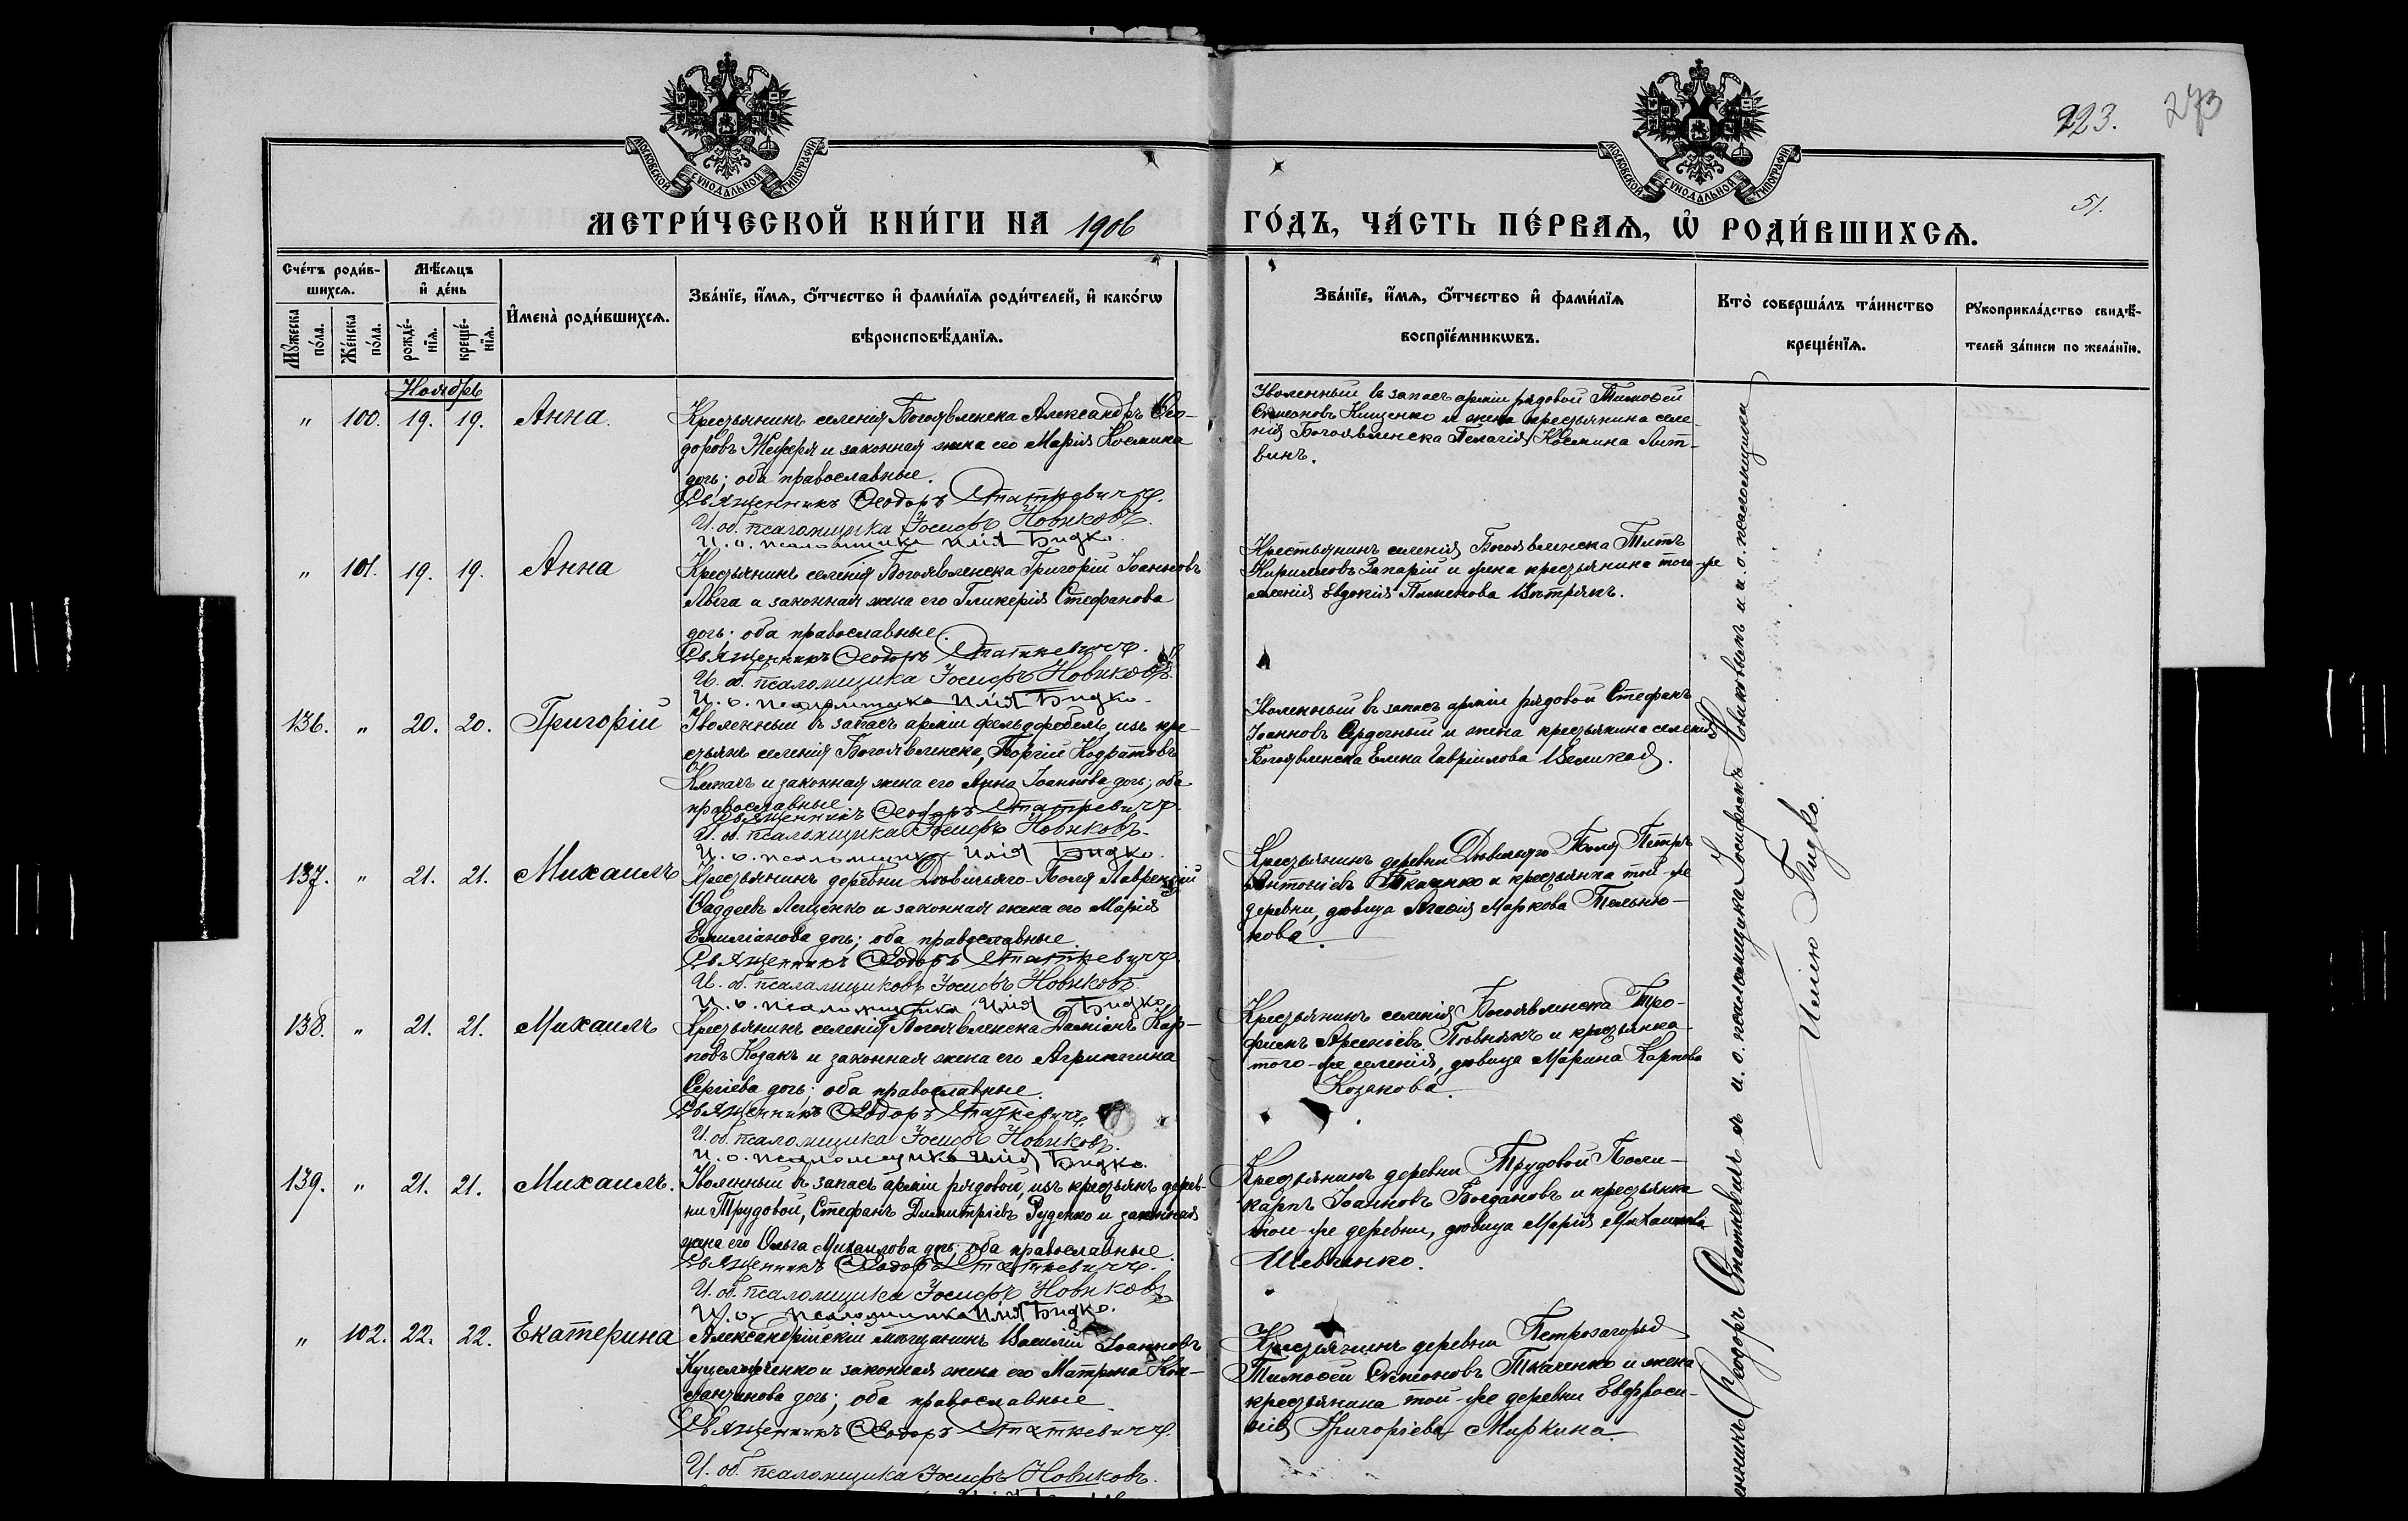 223. 273
МОСКОВСКОЙ СѴНОДАЛЬНОЙ ТИПОГРАФІИ
МОСКОВСКОЙ СѴНОДАЛЬНОЙ ТИПОГРАФІИ
51.
МЕТРИ́ЧЕСКОЙ КНИ́ГИ НА 1906 ГО́ДЪ, ЧА́СТЬ ПЕ́РВАѦ, Ѡ҆ РОДИ́ВШИХСѦ.
Сче́тъ роди́в-
шихсѧ.
Мꙋ́жеска по́ла.
Же́нска по́ла.
Мѣ́сѧцъ
и҆ де́нь
рожде́-нїѧ.
креще́-нїѧ.
И҆мена̀ роди́вшихсѧ.
Зва́нїе, и҆́мѧ, ѻ҆́тчество и҆ фами́лїѧ роди́телей, и҆ како́гѡ
вѣроисповѣ́данїѧ.
Зва́нїе, и҆́мѧ, ѻ҆́тчество и҆ фами́лїѧ
воспрїе́мникѡвъ.
Кто̀ соверша́лъ та́инство
креще́нїѧ.
Рꙋкоприкла́дство свидѣ́-
телей за́писи по жела́нїю.
Ноябрь
" 100. 19. 19. Анна.
Крестьянинъ селенія Богоявленска Александръ Ѳео-
доровъ и законная жена его Марія Космина
дочь; оба православные.
Священникъ Ѳеодоръ Статкевичъ.
И. об. псаломщика Іосифъ Новиковъ.
И. о. псаломщика Илія Бидко.
Уволенный въ запасъ арміи рядовой Тимоѳей
Симеоновъ Клищенко и жена крестьянина селе-
нія Богоявленска Пелагія Космина Лит-
винъ.
" 101. 19. 19. Анна
Крестьянинъ селенія Богоявленска Григорій Іоанновъ
и законная жена его Гликерія Стефанова
дочь; оба православные.
Священникъ Ѳеодоръ Статкевичъ.
И. об. псаломщика Іосифъ Новиковъ.
И. о. псаломщика Илія Бидко.
Крестьянинъ селенія Богоявленска Титъ
Кирилловъ Запарій и жена крестьянина того-же
селенія Евдокія Пименова Вѣтрякъ.
136. " 20. 20. Григорій
Уволенный въ запасъ арміи фельдфебель изъ кре-
стьянъ селенія Богоявленска, Георгій Кодратовъ
и законная жена его Анна Іоаннова дочь; оба
православные.
Священникъ Ѳеодоръ Статкевичъ.
И. об. псаломщика Іосифъ Новиковъ.
И. о. псаломщика Илія Бидко.
Уволенный въ запасъ арміи рядовой Стефанъ
Іоанновъ Сердечный и жена крестьянина селенія
Богоявленска Елена Гавріилова Великая.
137. " 21. 21. Михаилъ
Крестьянинъ деревни Дѣвичьяго-Поля Лаврентій
Ѳаддеевъ Лещенко и законная жена его Марія
Емиліанова дочь; оба православные.
Священникъ Ѳеодоръ Статкевичъ.
И. об. псаломщиковъ Іосифъ Новиковъ.
И. о. псаломщика Илія Бидко.
Крестьянинъ деревни Дѣвичьяго-Поля Петръ
Антоніевъ Ткаченко и крестьянка той-же
деревни, дѣвица Агаѳія Маркова Тельню-
кова.
138. " 21. 21. Михаилъ
Крестьянинъ селенія Богоявленска Даміанъ Кар-
повъ Козакъ и законная жена его Агриппина
Сергіева дочь; оба православные.
Священникъ Ѳеодоръ Статкевичъ.
И. об. псаломщика Іосифъ Новиковъ.
И. о. псаломщика Илія Бидко.
Крестьянинъ селенія Богоявленска Тро-
фимъ Арсеніевъ Пѣвнякъ и крестьянка
того-же селенія, дѣвица Марина Карпова
Козакова.
139. " 21. 21. Михаилъ.
Уволенный въ запасъ арміи рядовой, изъ крестьянъ дерев-
ни Трудовой, Стефанъ Димитріевъ Руденко и законная
жена его Ольга Михаилова дочь; оба православные.
Священникъ Ѳеодоръ Статкевичъ.
И. об. псаломщика Іосифъ Новиковъ
И. о. псаломщика Илія Бидко.
Крестьянинъ деревни Трудовой Поли-
карпъ Іоанновъ Богдановъ и крестьянка
той-же деревни, дѣвица Марія Михаилова
Шевченко.
" 102. 22. 22. Екатерина
Александрійскій мѣщанинъ Василій Іоанновъ
и законная жена его Матрона Кон-
стантинова дочь; оба православные.
Священникъ Ѳеодоръ Статкевичъ.
И. об. псаломщика Іосифъ Новиковъ.
Крестьянинъ деревни Петрозагорья
Тимоѳей Симеоновъ Ткаченко и жена
крестьянина той-же деревни Евфроси-
нія Григоріева Миркина.
Ѳеодоръ Статкевичъ и и. о. псаломщика Іосифомъ Новиковымъ и и. о. псаломщика
Иліею Бидко.